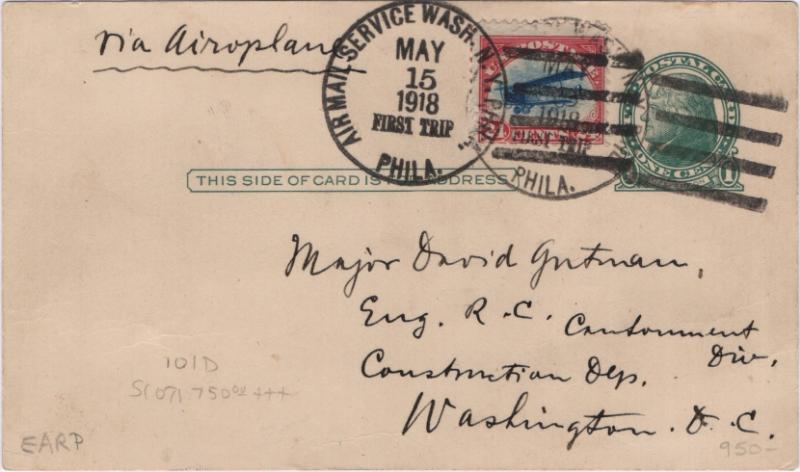 via Aeroplane
AIR MAIL SERVICE WASH. N.Y. PHILA.
MAY
15
1918
FIRST TRIP
PHILA.
1918
FIRST TRIP
PHILA.
U.S. POSTAGE
CENTS
POSTAL CARD
ONE CENT
1
THIS SIDE OF CARD IS ADDRESS
Major David Gutman,
Eng. R.C. Cantonment
Div,
Construction Dep.
Washington. D.C.
101D
750⁰⁰ +++
EARP
950-